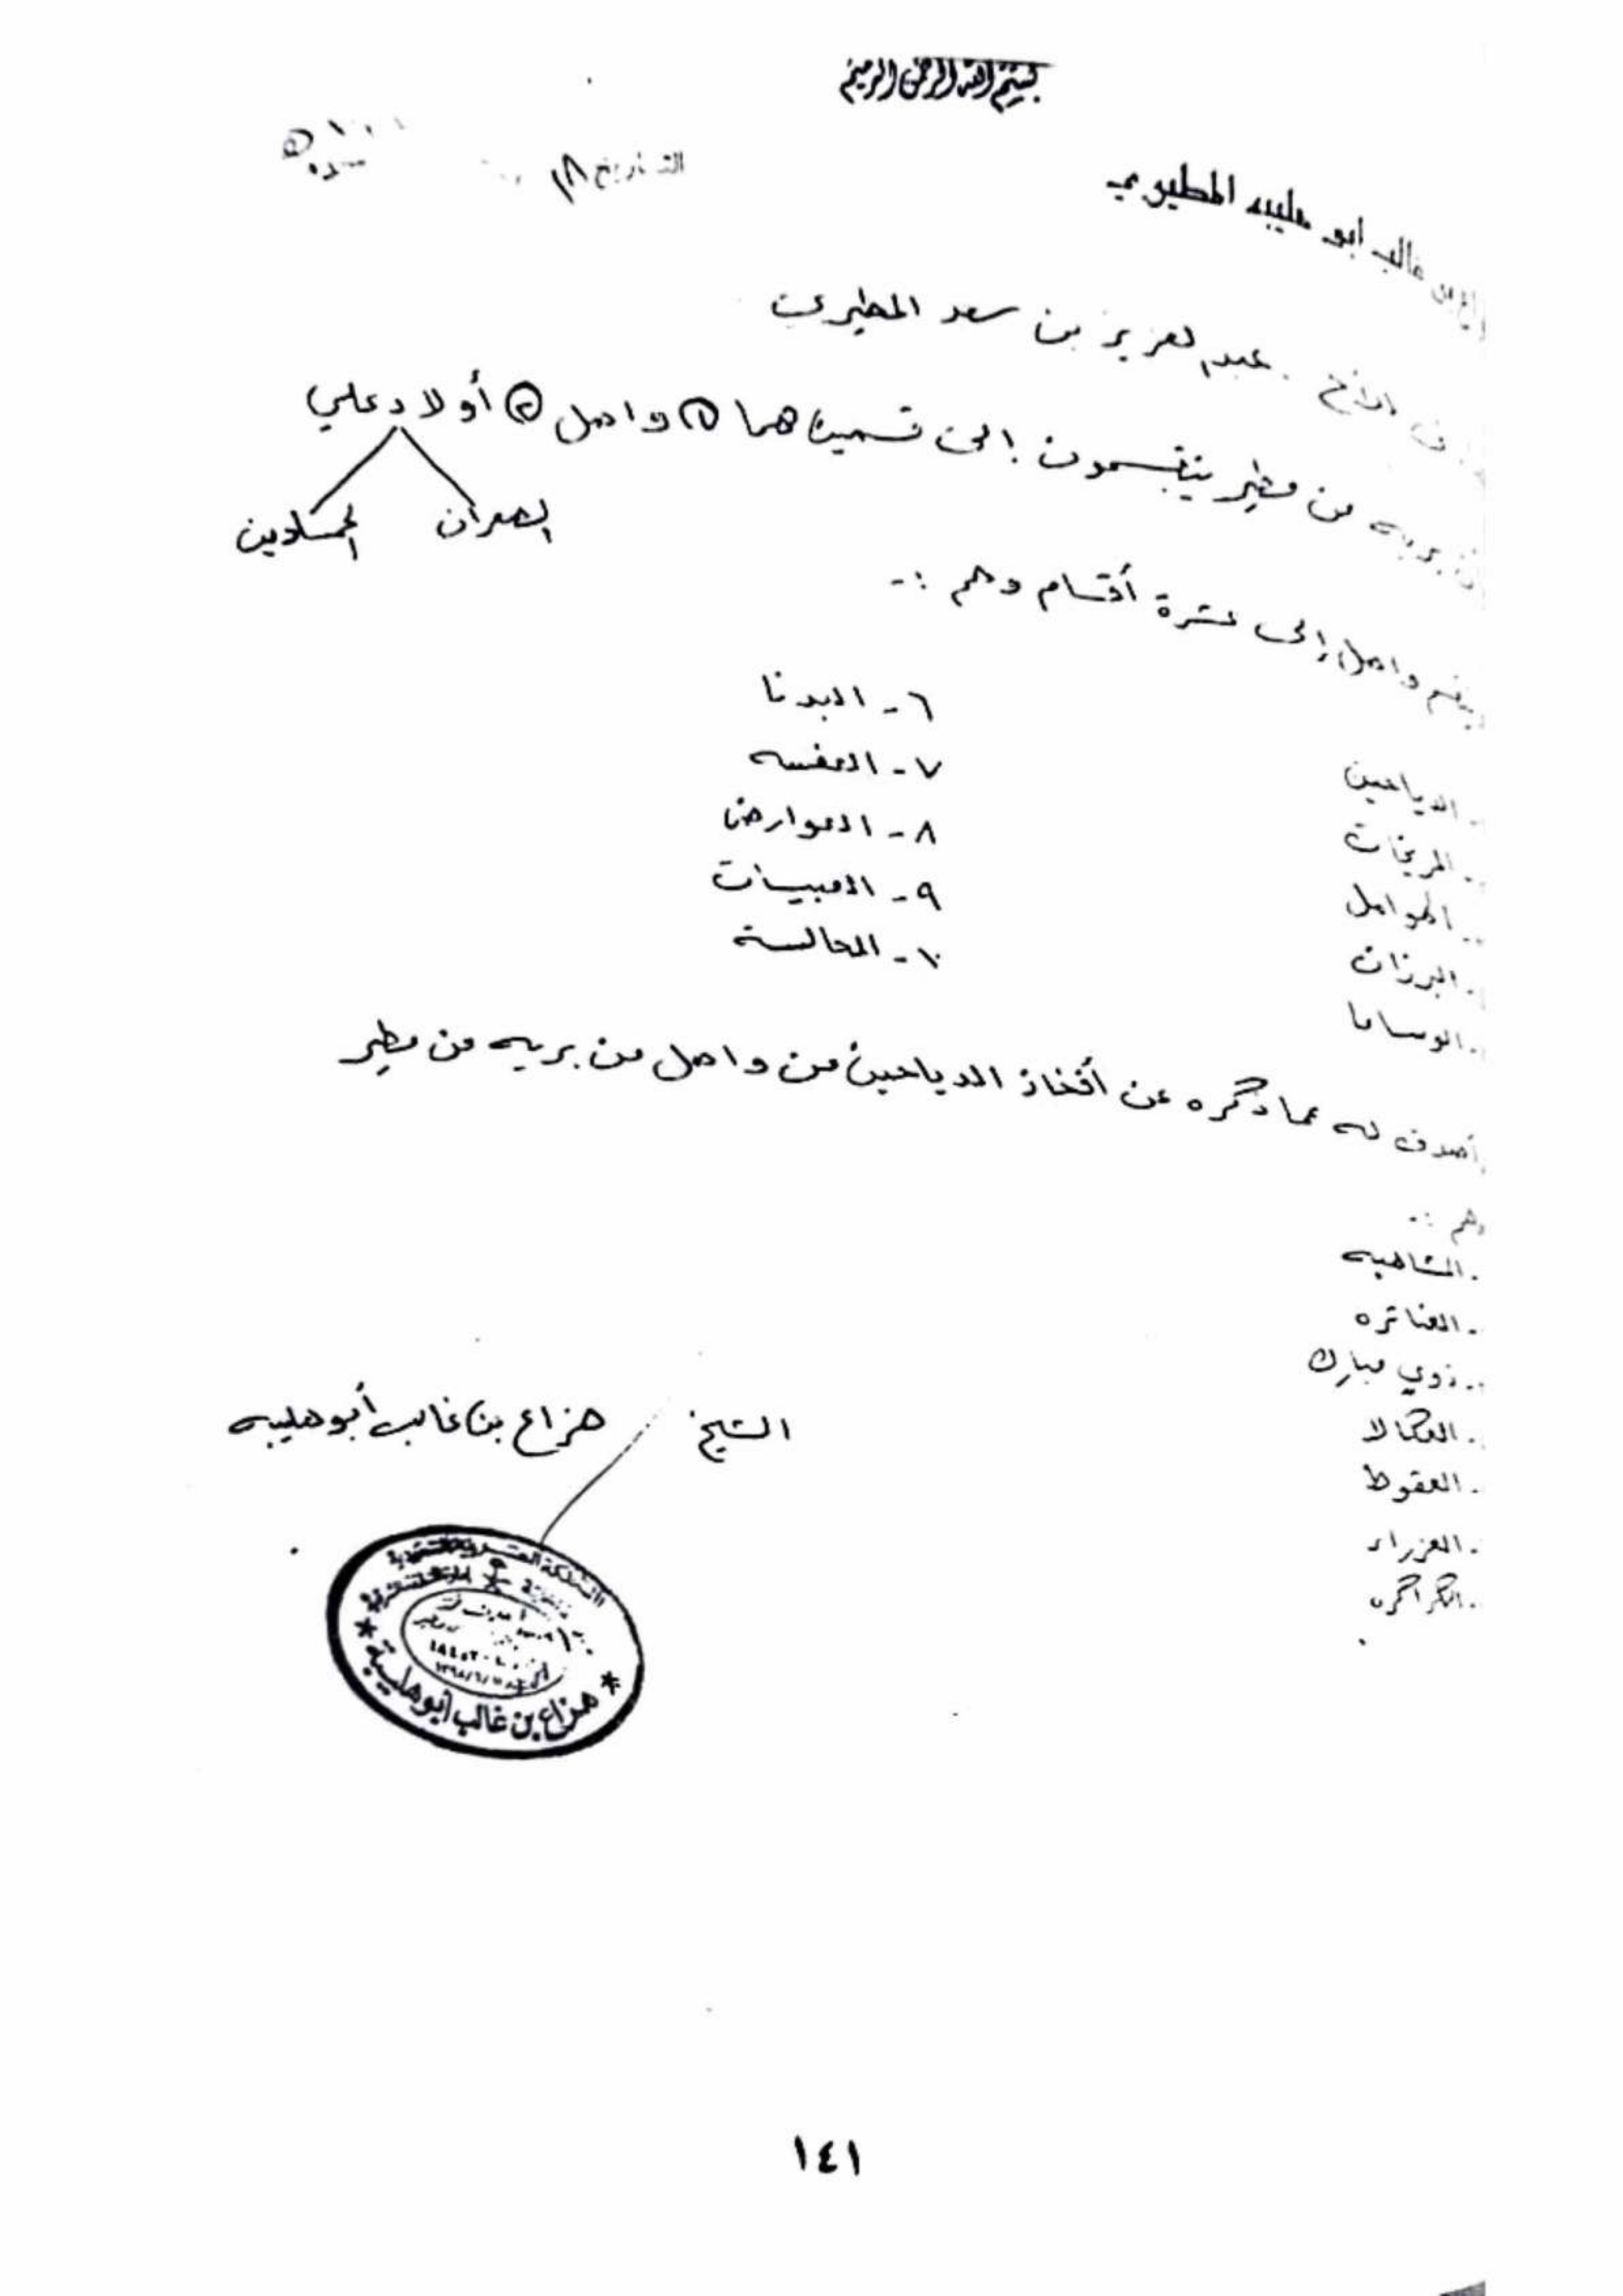 بسم الله الرحمن الرحيم
التاريخ ١٨
غالب ابو هليبه المطيري
الأخ عبدالعزيز بن سعد المطيري
بريه من مطير ينقسمون إلى قسمين هما ① واصل ② أولاد علي
الصعران الحمادين
واصل إلى عشرة أقسام وهم :-
- الدياحين
- المريخات
- الهوامل
- البرزان
- الوساما
٦- البدنا
٧- العفسه
٨- العوارض
٩- العبيسات
١٠- المحالسة
أصدق له عما ذكره عن أفخاذ الدياحين من واصل من بريه من مطير
وهم :-
- المشاهبه
- العناتره
- ذوي مبارك
- العكالا
- العقوط
- العزراء
- الكراكره
الشيخ هزاع بن غالب أبو هليبه
المملكة العربية السعودية
هزاع بن غالب أبو هليبة
١٤١